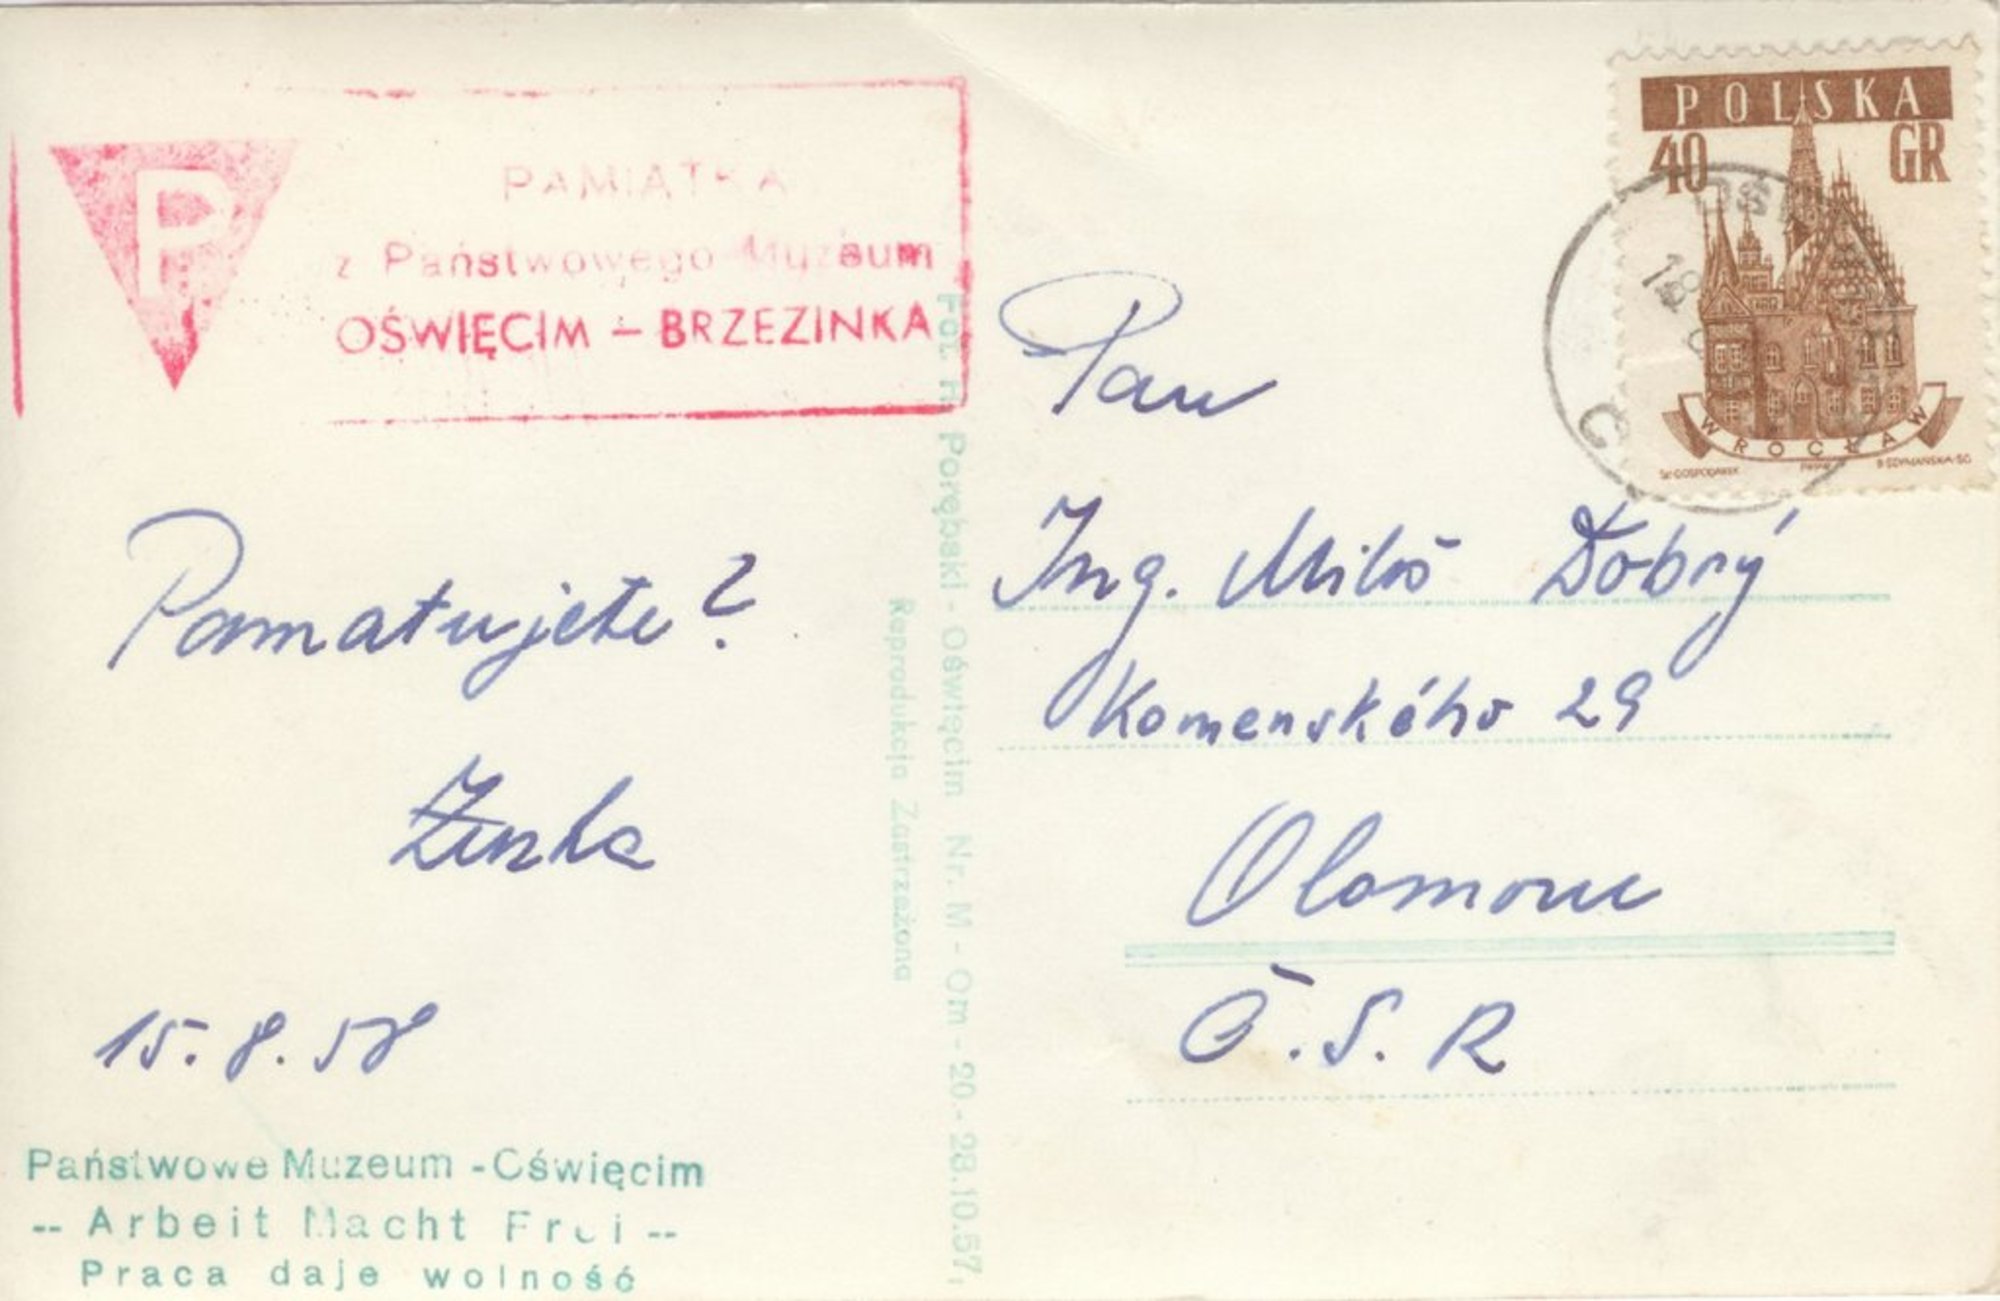 P
PAMIĄTKA
z Państwowego Muzeum
OŚWIĘCIM - BRZEZINKA
POLSKA
40 GR
WROCŁAW
Pan
Ing. Miloš Dobrý
Komenského 29
Olomouc
Č.S.R
Pamatujete?
Zenka
15.8.58
Fot. H. Porębski - Oświęcim Nr. M - Om - 20 - 28.10.57.
Reprodukcja Zastrzeżona
Państwowe Muzeum - Oświęcim
-- Arbeit Macht Frei --
Praca daje wolność